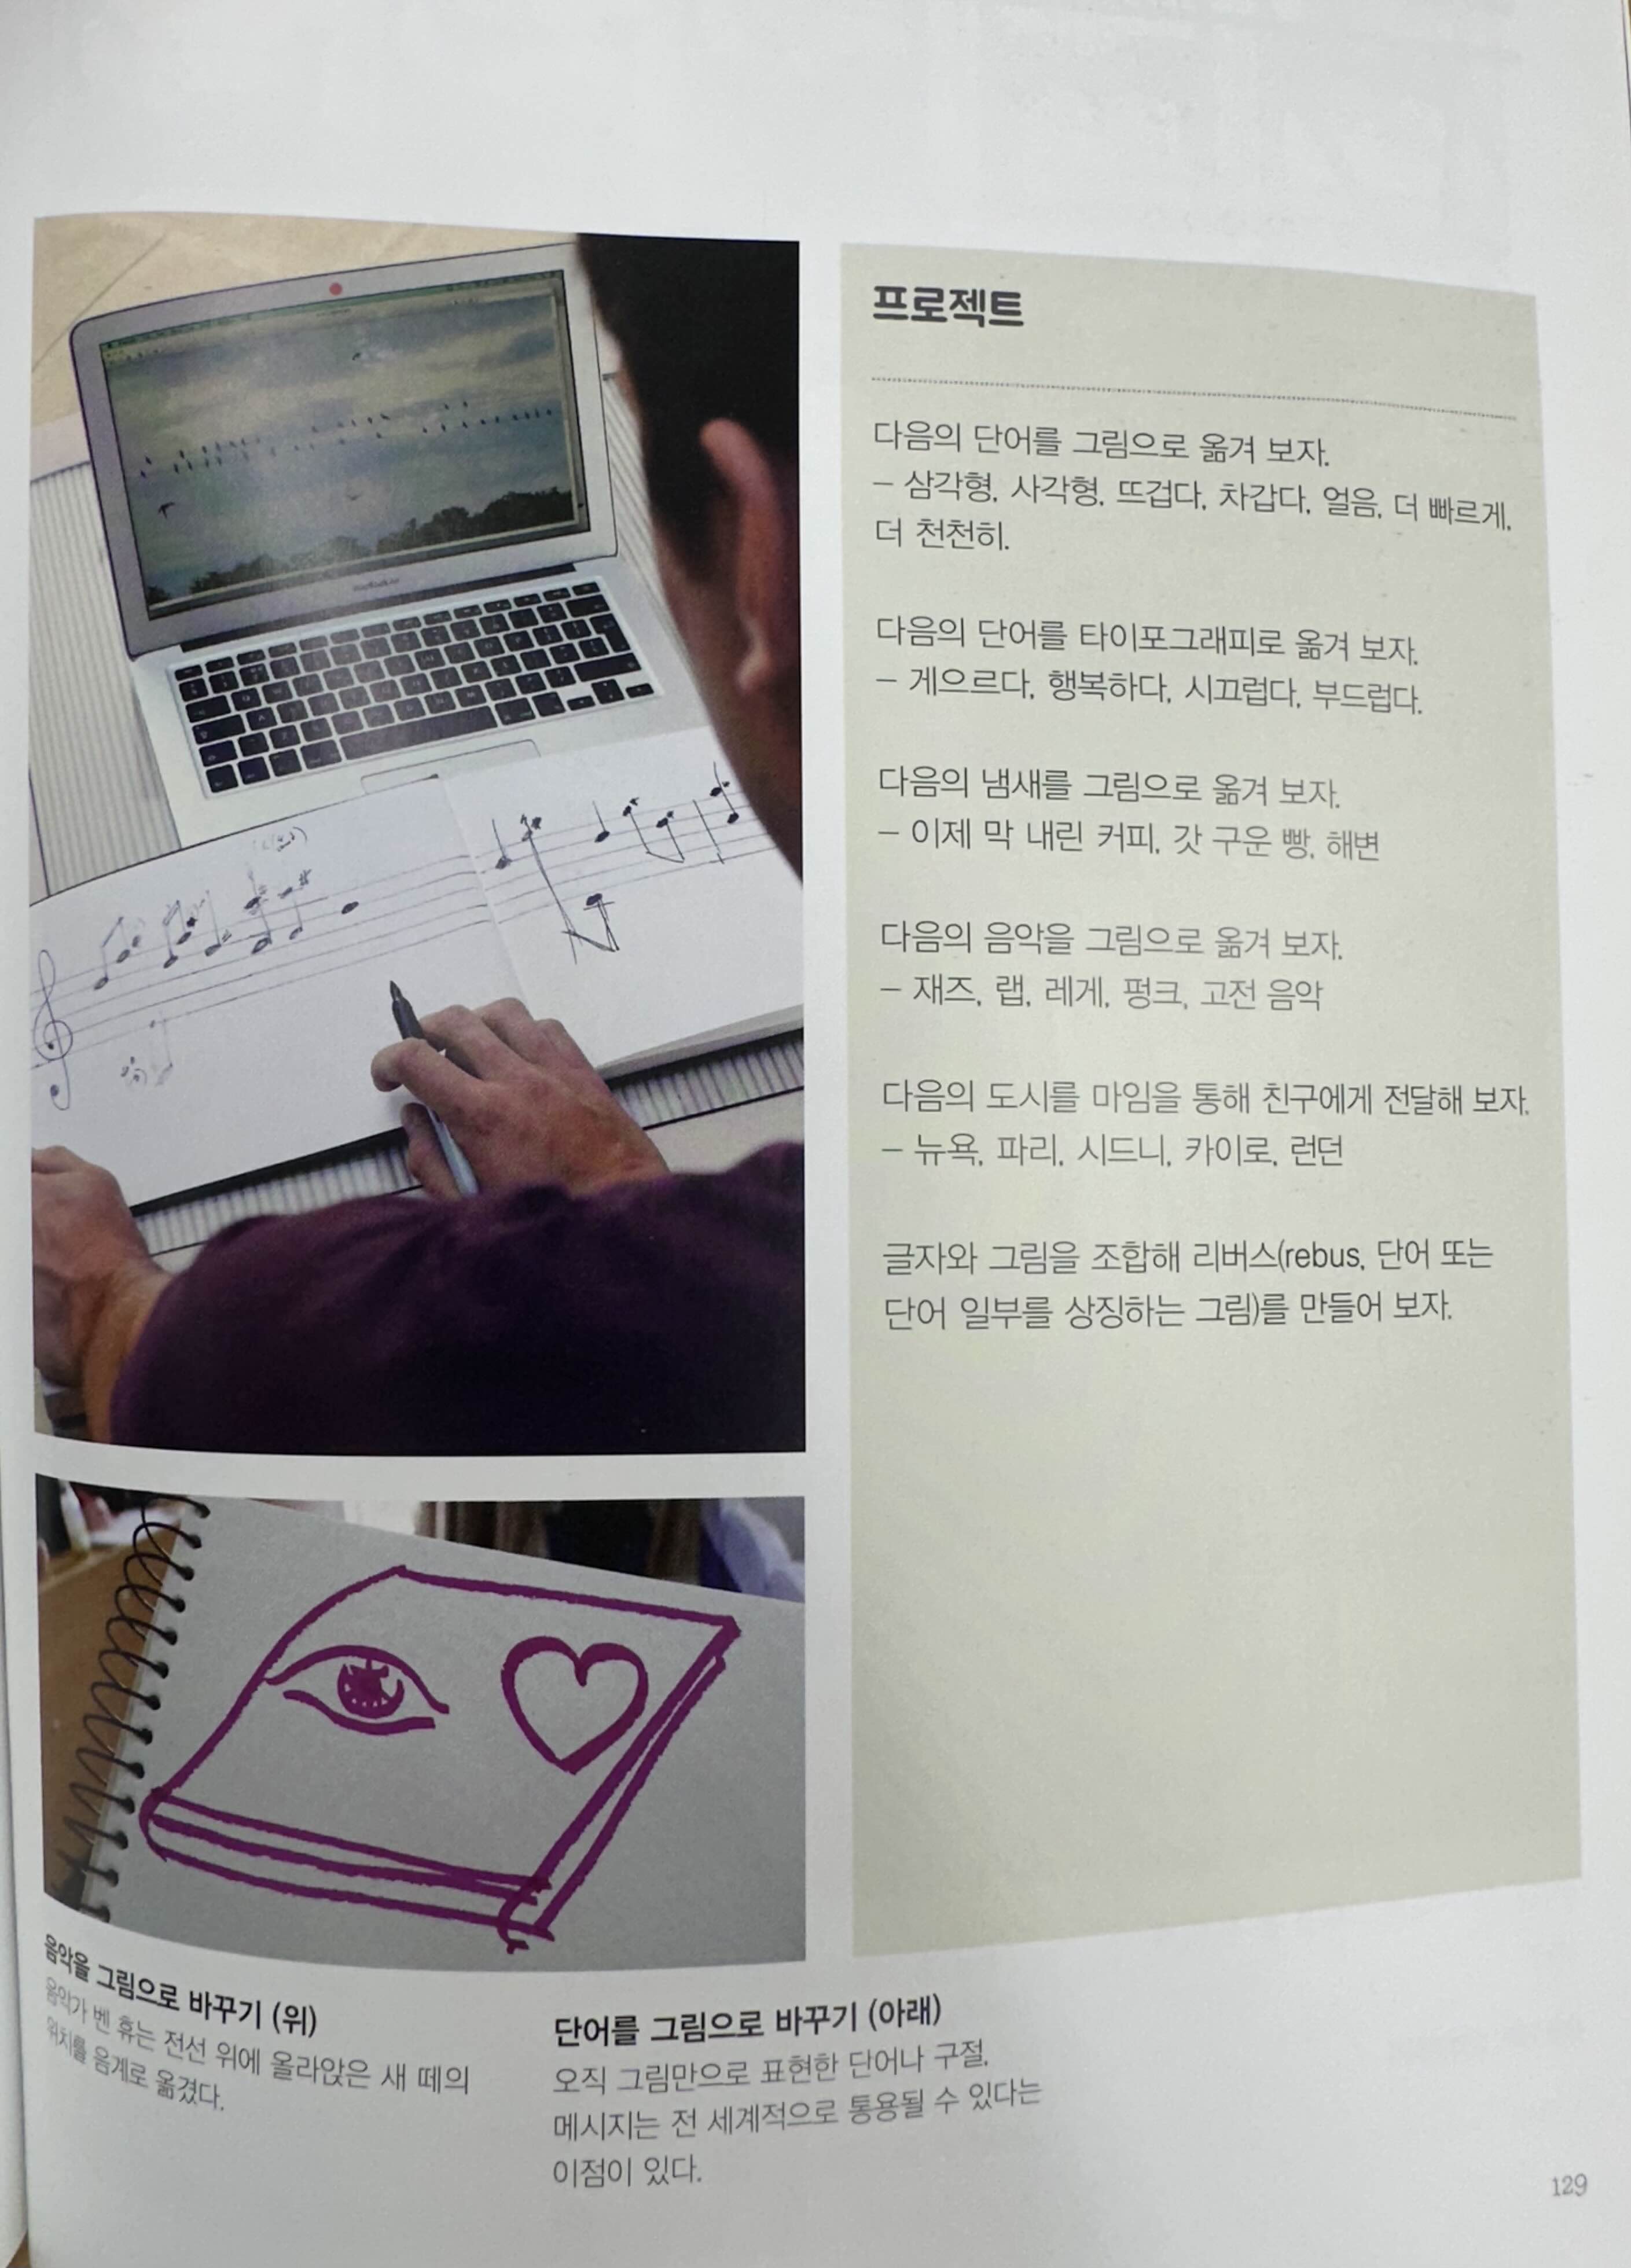 프로젝트
다음의 단어를 그림으로 옮겨 보자.
– 삼각형, 사각형, 뜨겁다, 차갑다, 얼음, 더 빠르게,
더 천천히.
다음의 단어를 타이포그래피로 옮겨 보자.
– 게으르다, 행복하다, 시끄럽다, 부드럽다.
다음의 냄새를 그림으로 옮겨 보자.
– 이제 막 내린 커피, 갓 구운 빵, 해변
다음의 음악을 그림으로 옮겨 보자.
– 재즈, 랩, 레게, 펑크, 고전 음악
다음의 도시를 마임을 통해 친구에게 전달해 보자.
– 뉴욕, 파리, 시드니, 카이로, 런던
글자와 그림을 조합해 리버스(rebus, 단어 또는
단어 일부를 상징하는 그림)를 만들어 보자.
음악을 그림으로 바꾸기 (위)
음악가 벤 휴는 전선 위에 올라앉은 새 떼의
위치를 음계로 옮겼다.
단어를 그림으로 바꾸기 (아래)
오직 그림만으로 표현한 단어나 구절,
메시지는 전 세계적으로 통용될 수 있다는
이점이 있다.
129